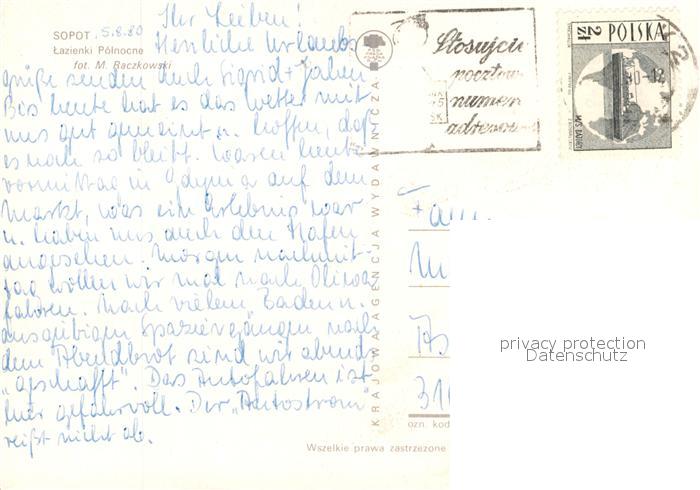 Ihr Lieben!
SOPOT 5.8.80
Łazienki Północne
fot. M. Raczkowski
Herzliche Urlaubs
grüße senden Euch Sigrid +
Bis heute hat es das Wetter mit
uns gut gemeint u. hoffen, daß
es noch so bleibt. Waren heute
vormittag in Gdynia auf dem
Markt, was ein Erlebnis war
u. haben uns auch den Hafen
angesehen. Morgen nachmit-
tag wollen wir mal nach Oliwa
fahren. Nach vielem Baden u.
ausgiebigen Spaziergängen nach
dem Abendbrot sind wir abends
„geschafft". Das Autofahren ist
hier gefahrvoll. Der „Autostrom"
reißt nicht ab.
KRAJOWA AGENCJA WYDAWNICZA
Stosujcie
pocztowe
numery
adresowe
POLSKA
2 zł
M/S BATORY
Fam.
310
ozn. kod
Wszelkie prawa zastrzeżone
privacy protection
Datenschutz